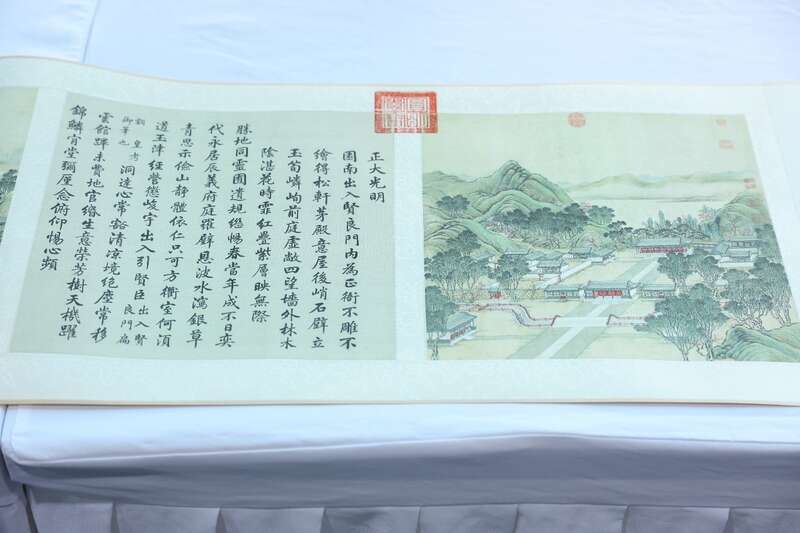 正大光明
園南出入賢良門內為正衙不雕不
繪得松軒茅殿意屋後峭石壁立
玉筍嶙峋前庭虛敞四望墻外林木
陰湛花時霏紅疊紫層映無際
勝地同靈囿遺規繼暢春當年成不日奕
代永居辰義府庭羅璧恩波水瀉銀草
青思示儉山靜體依仁只可方衢室何須
道玉津經營懲峻宇出入引賢臣出入賢良門扁
額皇考御筆也洞達心常豁清涼境絕塵常移
雲館蹕未費地官緡生意榮芳樹天機躍
錦鱗肯堂彌廑念俯仰惕心頻